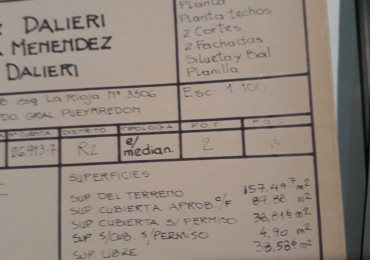 DALIERI
MENENDEZ
DALIERI
Planta
Planta techos
2 Cortes
2 Fachadas
Silueta y Bal
Planilla
esq La Rioja Nº 3506
GRAL PUEYRREDON
Esc: 1:100
Nº CUENTA
DISTRITO
TIPOLOGIA
F.O.T.
F.O.
26913-7
R2
e/
median.
2
SUPERFICIES
SUP DEL TERRENO 157.49 m2
SUP CUBIERTA APROB. C/F 89.88 m2
SUP CUBIERTA S/ PERMISO 38,816 m2
SUP. S/CUB. S/PERMISO 4.90 m2
SUP LIBRE 38.586 m2